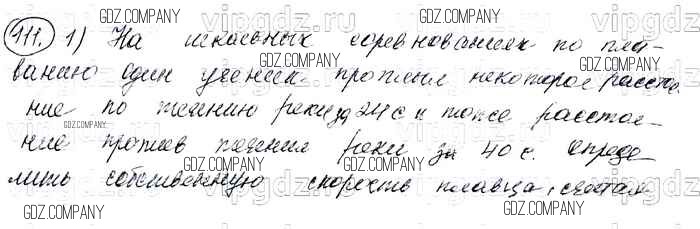 111. 1) На школьных соревнованиях по пла-
ванию один ученик проплыл некоторое расстоя-
ние по течению реки за 24 с и тоже расстоя-
ние против течения реки за 40 с. Опреде
лить собственную скорость пловца, считая
GDZ.COMPANY
GDZ.COMPANY
GDZ.COMPANY
GDZ.COMPANY
GDZ.COMPANY
GDZ.COMPANY
GDZ.COMPANY
GDZ.COMPANY
GDZ.COMPANY
GDZ.COMPANY
GDZ.COMPANY